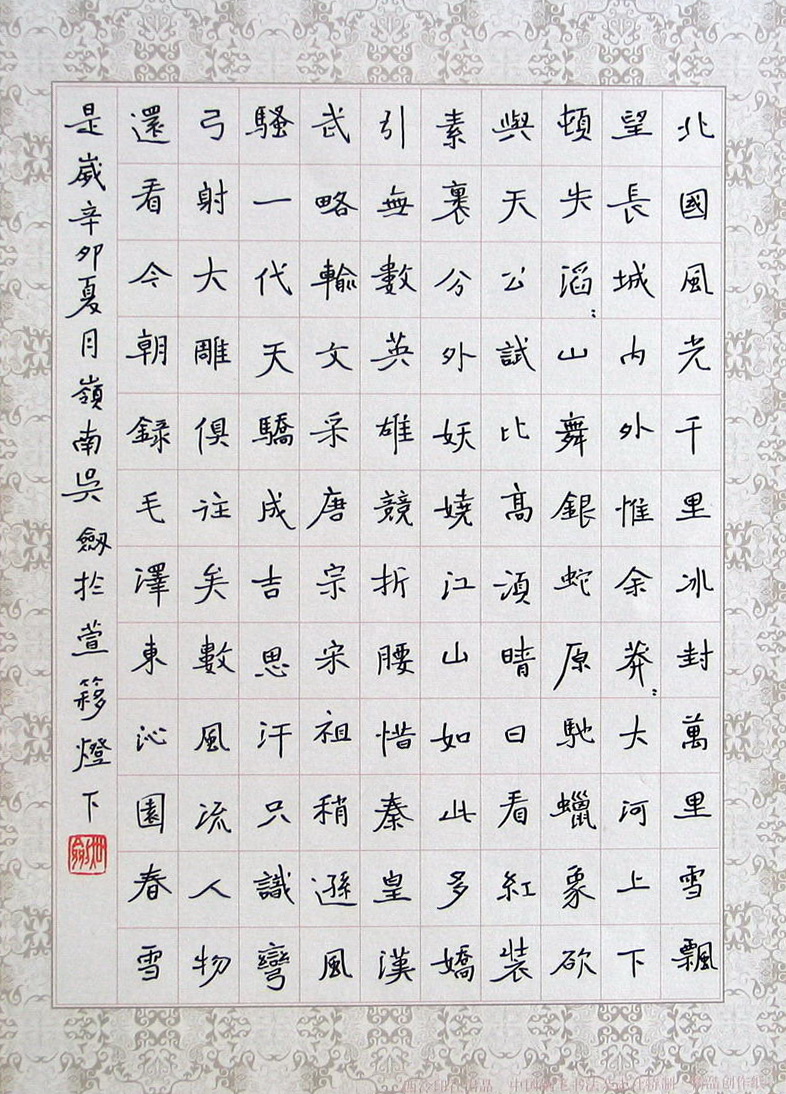 北國風光千里冰封萬里雪飄
望長城内外惟余莽〻大河上下
頓失滔〻山舞銀蛇原馳蠟象欲
與天公試比高須晴日看紅裝
素裹分外妖嬈江山如此多嬌
引無數英雄競折腰惜秦皇漢
武略輸文采唐宗宋祖稍遜風
騷一代天驕成吉思汗只識彎
弓射大雕俱往矣數風流人物
還看今朝錄毛澤東沁園春雪
是歲辛卯夏月嶺南吳劔於萱簃燈下